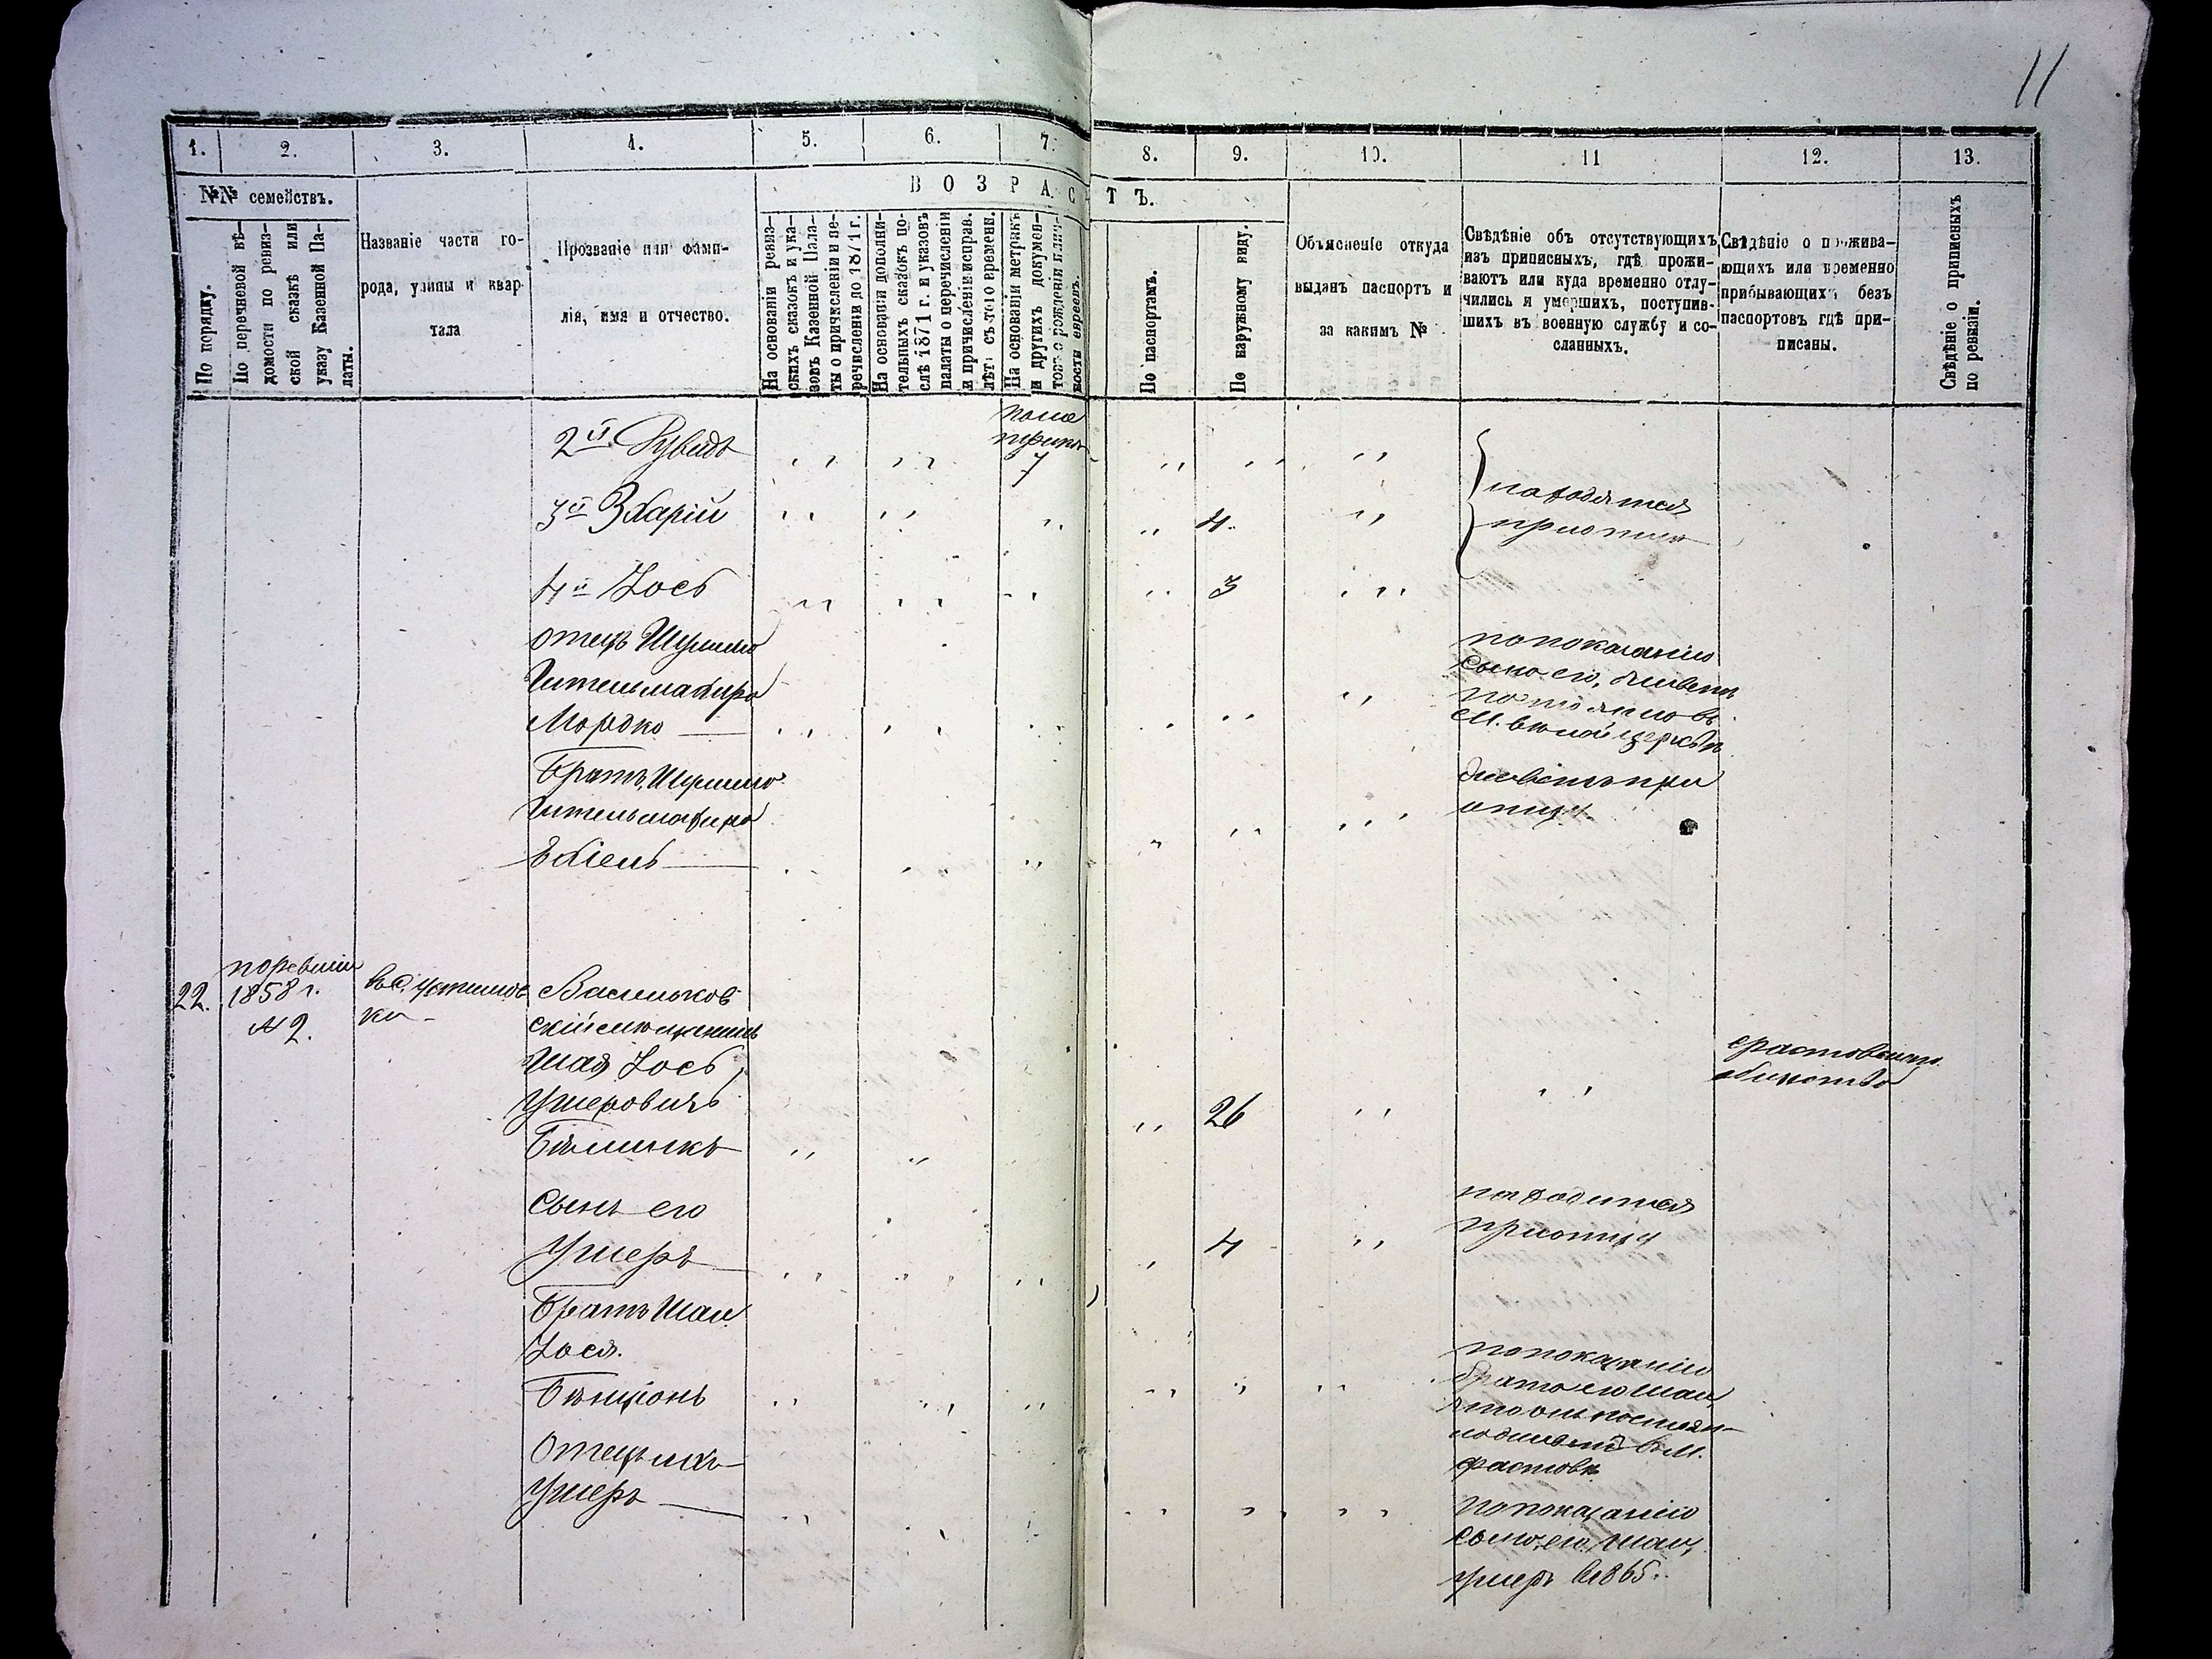 11
1. 2. 3. 4. 5. 6. 7. 8. 9. 10. 11 12. 13.
№№ семействъ.
ВОЗРАСТЪ.
По порядку.
По перечневой вѣ-
домости по ревиз-
ской сказкѣ или
указу Казенной Па-
латы.
Названіе части го-
рода, улицы и квар-
тала
Прозваніе или фами-
лія, имя и отчество.
На основаніи ревиз-
скихъ сказокъ и ука-
зовъ Казенной Пала-
ты о причисленіи и пе-
речислении до 1871 г.
На основаніи дополни-
тельныхъ сказокъ по-
слѣ 1871 г. и указовъ
палаты о перечисленіи
и причисленіе исправ.
лѣтъ съ того времени.
На основаніи метрикъ
и другихъ докумен-
товъ о рожденіи и лич-
ности евреевъ.
По паспортамъ.
По наружному виду.
Объясненіе откуда
выданъ паспортъ и
за какимъ №
Свѣдѣніе объ отсутствующихъ
изъ приписныхъ, гдѣ прожи-
ваютъ или куда временно отлу-
чились и умершихъ, поступив-
шихъ въ военную службу и со-
сланныхъ.
Свѣдѣніе о прожива-
ющихъ или временно
прибывающихъ безъ
паспортовъ гдѣ при-
писаны.
Свѣдѣніе о приписныхъ
по ревизіи.
2й
по ме
7
3й
4.
находятся
4й Іось
3
отецъ
Мордко
по показанію
сына его, живетъ
постоянно въ
м. бѣлой церквѣ
братъ
живетъ при
отцѣ.
22.
по ревизіи
1858 г.
№ 2.
въ с. Устимов
ки
Васильков
скій мѣщанинъ
Шая Іось
Ушеровичъ
26
общества
сынъ его
Ушеръ
4
находится
при отцѣ
братъ Шаи
Іося.
Бенціонъ
по показанію
брата его Шаи,
что онъ постоян-
но живетъ в м.
фастовѣ
Отецъ ихъ
Ушеръ
по показанію
сына его Шаи,
умеръ в 1865.